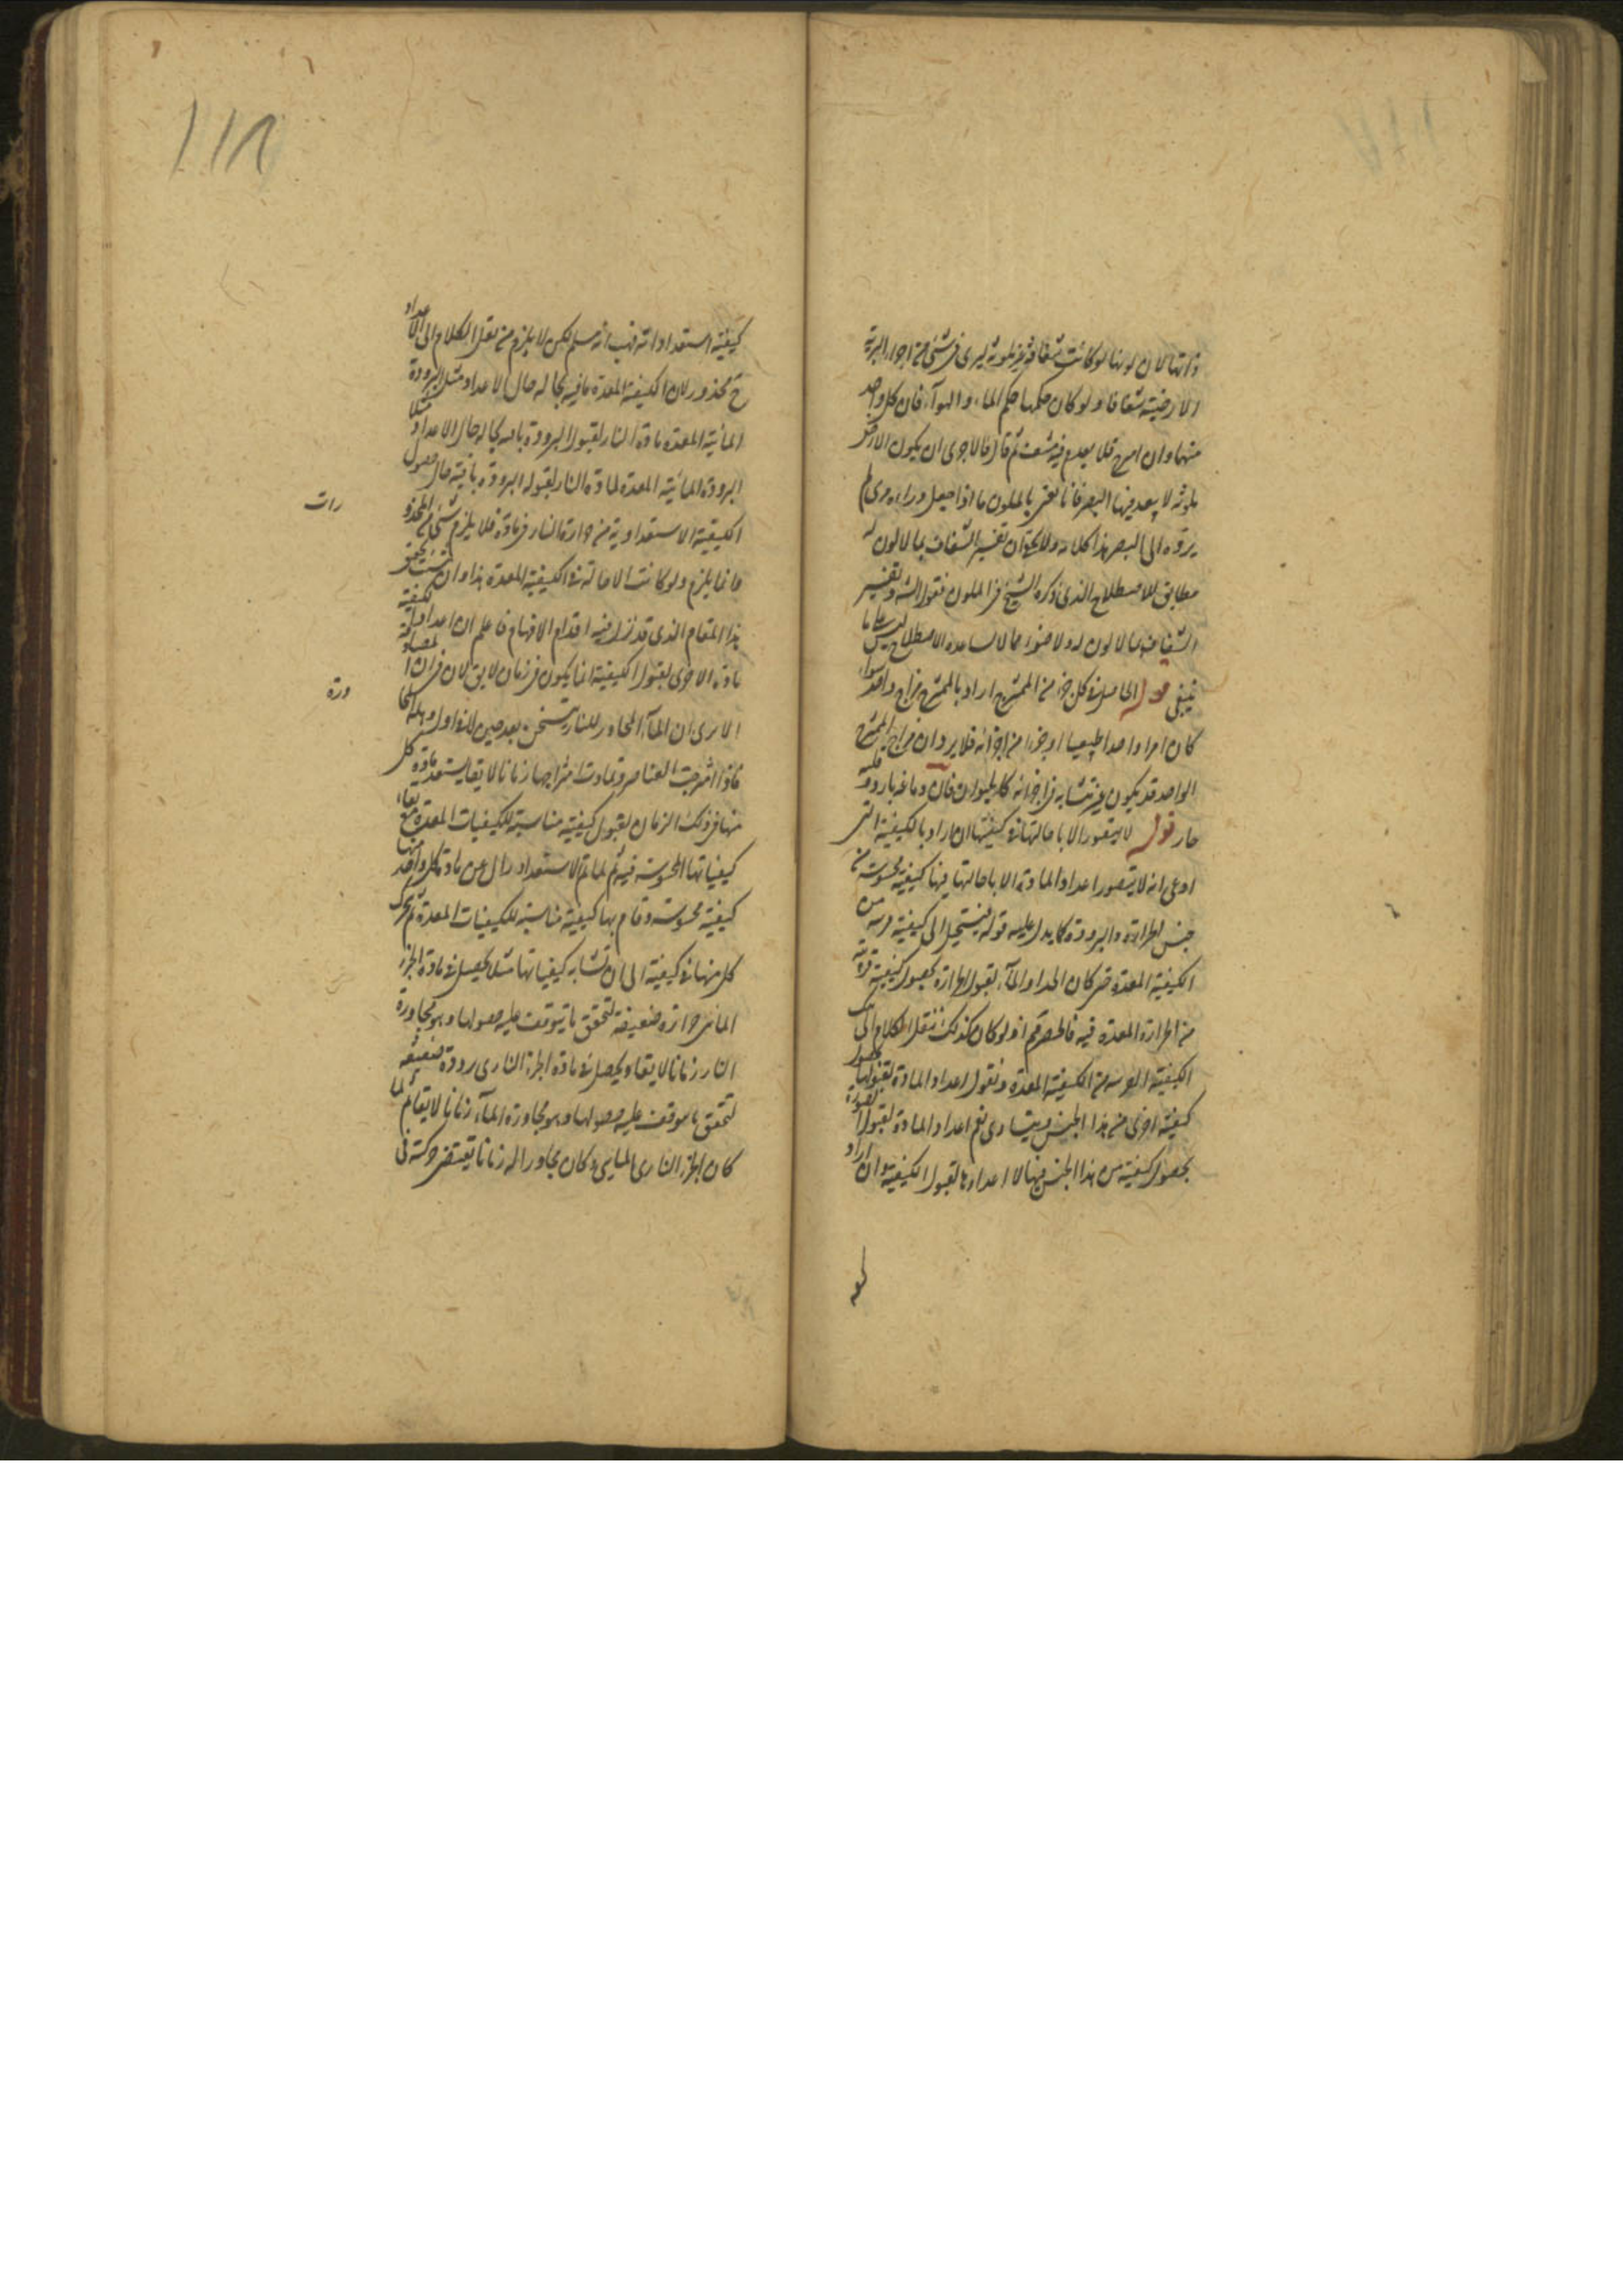 ذاتها لان لونها لو كانت شفافة غير ملونة ليرى فى شئ من اجزاء البرية
الارضية شفافا ولو كان حكمها حكم الماء والهواء فان كل واحد
منهما وان امتزج فلا يعدم فيه مشف ثم قال فالاحرى ان يكون الارض
ملونة لا ينفد فيها البصر فانا نعنى بالملون ما اذا جعل وراءه مرئى لم
يؤده الى البصر هذا كلامه ولا يخفى ان تفسير الشفاف بما لا لون له
مطابق للاصطلاح الذى ذكره الشيخ فى الملون فقول الشه وتفسير
الشفاف بما لا لون له ولا ضوء مما لا يساعده الاصطلاح ليس على ما
ينبغى قوله الحاصلة فى كل جزء من الممتزج اراد بالممتزج مزاج واحد سواء
كان امرا واحدا طبيعيا او جزءا من اجزائه فلا يرد ان مزاج الممتزج
الواحد قد يكون غير متشابه فى اجزائه كالحيوان فان دماغه بارد وقلبه
حار قوله لا يتصور الا باحالتها فى كيفيتها ان اراد بالكيفية التى
ادعى انه لا يتصور اعداد المادة الا باحالتها فيها كيفية محسوسة من
جنس الحرارة والبرودة كما يدل عليه قوله فيستحيل الى كيفية
الكيفية المعدة حتى كان اعداد الماء لقبول الحرارة بحصول كيفية قريبة
من الحرارة المعدة فيه فالحصر ثم اذ لو كان كذلك ننقل الكلام الى تلك
الكيفية القريبة من الكيفية المعدة ونقول اعداد المادة لقبولها بحصول
كيفية اخرى من هذا الجنس ويتسا وى نعم اعداد المادة لقبول الصورة
بحصول كيفية من هذا الجنس فيها لا اعدادها لقبول الكيفية وان اراد
كيفية استعدادية فهب انه مسلم لكن لا يلزم من نقل الكلام الى الاعداد
ح محذور لان الكيفية المعدة باقية بحالها حال الاعداد مثل البرودة
المائية المعدة مادة النار لقبول البرودة باقية بحالها حال الاعداد مثلا
البرودة المائية المعدة لمادة النار لقبوله البرودة باقية حال حصول
الكيفية الاستعدادية من حرارة النار فى مادته فلا يلزم شئ من المحذورات
وانما يلزم ولو كانت الاحالة فى الكيفية المعدة هذا وان شئت تحقيق
هذا المقام الذى قد تزل فيه اقدام الافهام فاعلم ان اعداد كيفية
مادة الاخرى لقبول الكيفية انما يكون فى زمان لا يق لان فى ان المصادفة
الا يرى ان الماء المجاور للنار يتسخن بعد حين لا فى اول وهلة المجاورة
فاذا امتزجت العناصر وتماديت امتزاجها زمانا لايقا يستعد مادة كل
منها فى ذلك الزمان لقبول كيفية مناسبة للكيفيات المعدة مع بقاء
كيفياتها المحسوسة فيه ثم لما تم الاستعداد زال عن مادة كل واحد منها
كيفية محسوسة وقام بها كيفية مناسبة للكيفيات المعدة ثم تحرك
كل منها فى كيفية الى ان تشابه كيفياتها مثلا يحصل فى مادة الجزء
المائى حرارة ضعيفة لتحقق ما يتوقف عليه حصولها وهو مجاورة
النار زمانا لايقا ويحصل فى مادة الجزء النارى برودة ضعيفة
لتحقق ما يتوقف عليه حصولها وهو مجاورة الماء زمانا لايقا ثم لما
كان الجزء النارى المائى وكان مجاورا له زمانا يقتضى حركته فى